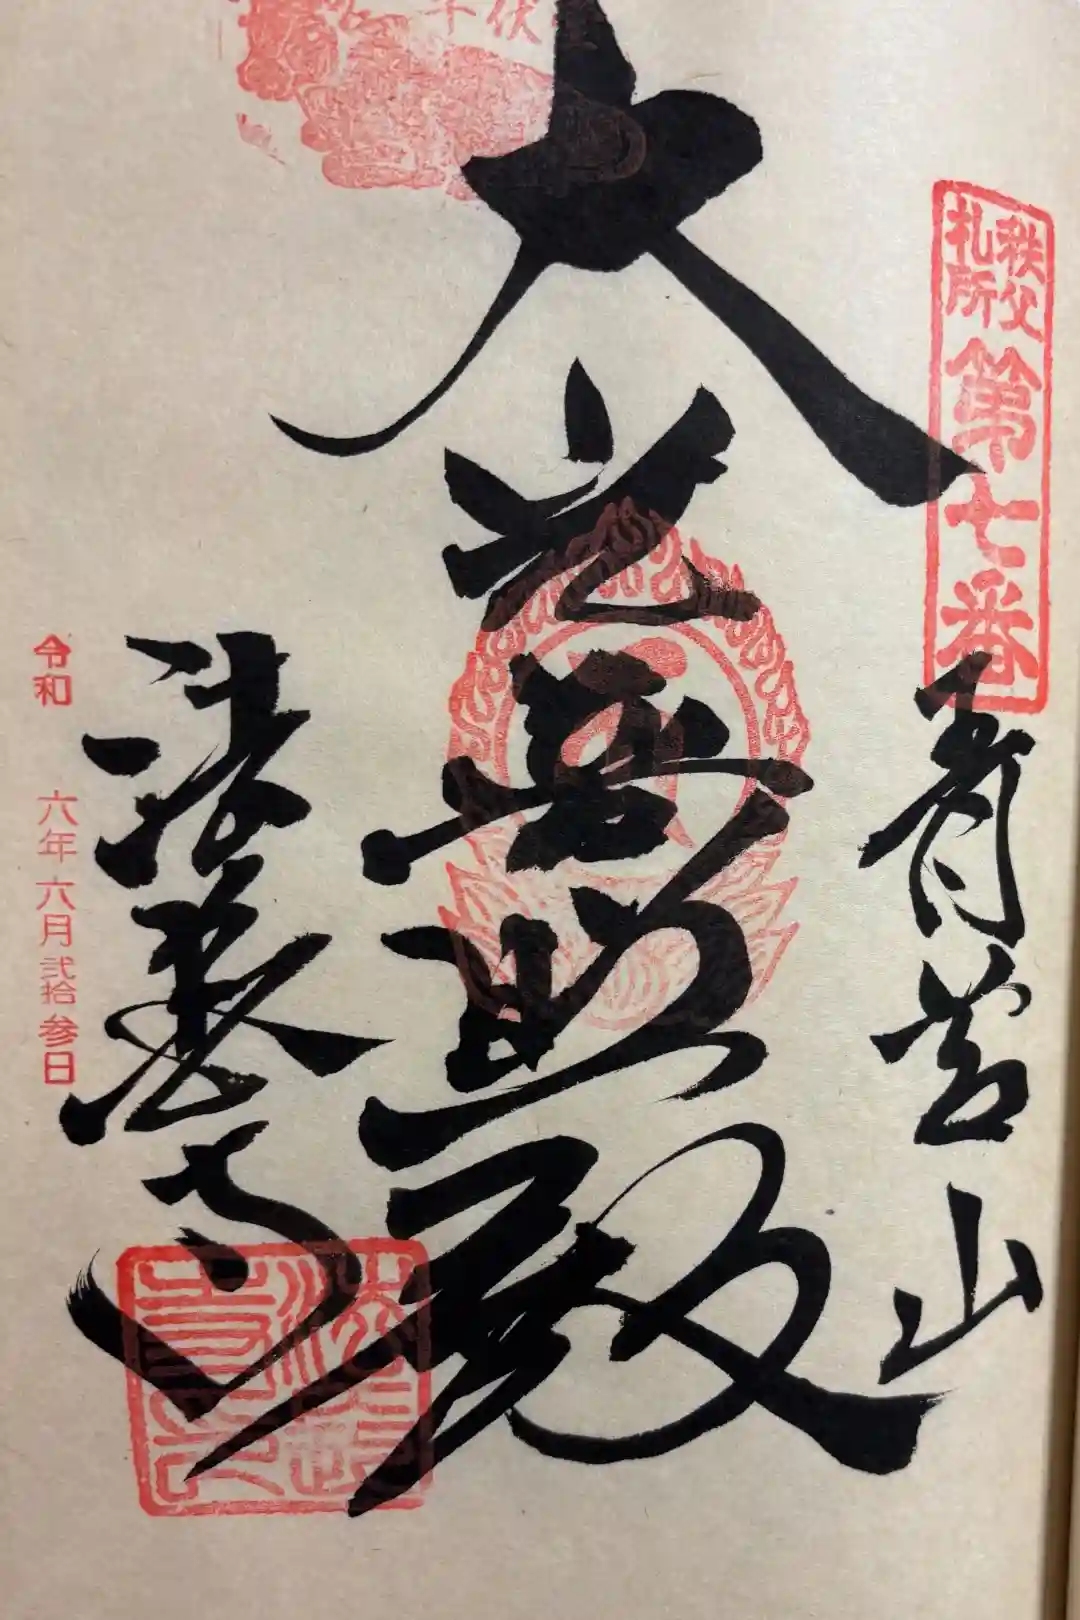 秩父
札所
第七番
青苔山
大光無照殿
法長寺
令和 六年 六月 弐拾 参日